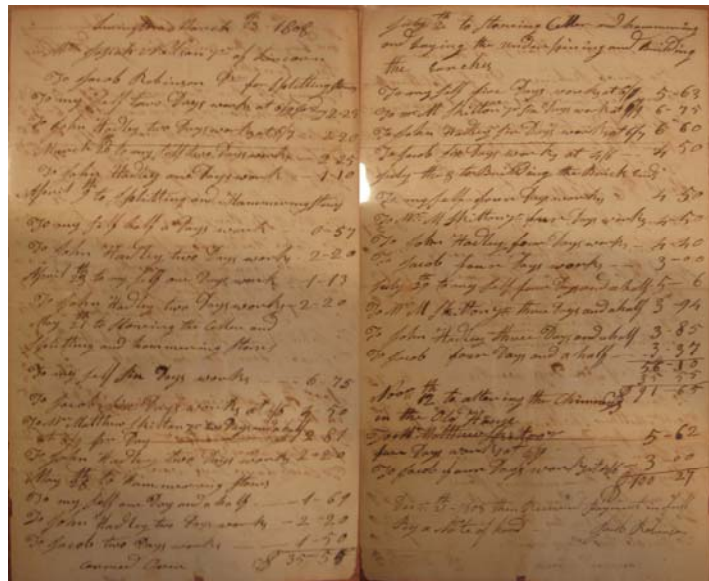 March 1808
of Lincoln
To Jacob Robinson Dr for Splitting Stones
To my self two Days works at 2-25
To John Hadley two Days works at 6/7 2-20
March to my self two Days works 2-25
To John Hadley one Days work 1-10
April to Splitting and Hammering Stones
To my self half a Days work 0-57
To John Hadley two Days works 2-20
April to my self one Days work 1-13
To John Hadley two Days works 2-20
May to Stoneing the Celler and
Splitting and hammering Stones
To my self six Days works 6-75
To Jacob six Days works at 4/6 4-50
To Mr Matthew Skilton two Days and a half
Day 2-81
To John Hadley two Days works 2-20
May to hammering Stones
To my self one Day and a half 1-69
To John Hadley two Days works 2-20
To Jacob two Days works 1-50
carried Over $ 35-55
July to Stoneing Celler and hammering
and laying the underpining and Building
the
To my self five Days works at 5-63
To Mr M Skilton six Days works at 6/9 6-75
To John Hadley six Days works at 6/7 6-60
To Jacob six Days works at 4/6 4-50
July the 8 to Building the Brick Ends
To my self four Days works 4-50
To Mr M Skilton four Days works 4-50
To John Hadley four Days works 4-40
To Jacob four Days works 3-00
July to my self four Days and a half 5-6
To Mr M Skilton three Days and a half 3-94
To John Hadley three Days and a half 3-85
To Jacob four Days and a half 3-37
56-10
35-55
$ 91-65
Novr 12th to altering the Chimney
in the Old House
To Mr Matthew Skilton 5-62
five Days works at 6/9
To Jacob four Days works at 4/6 3-00
$100-27
1808 then Received payment in full
By a Note of hand Jacob Robinson